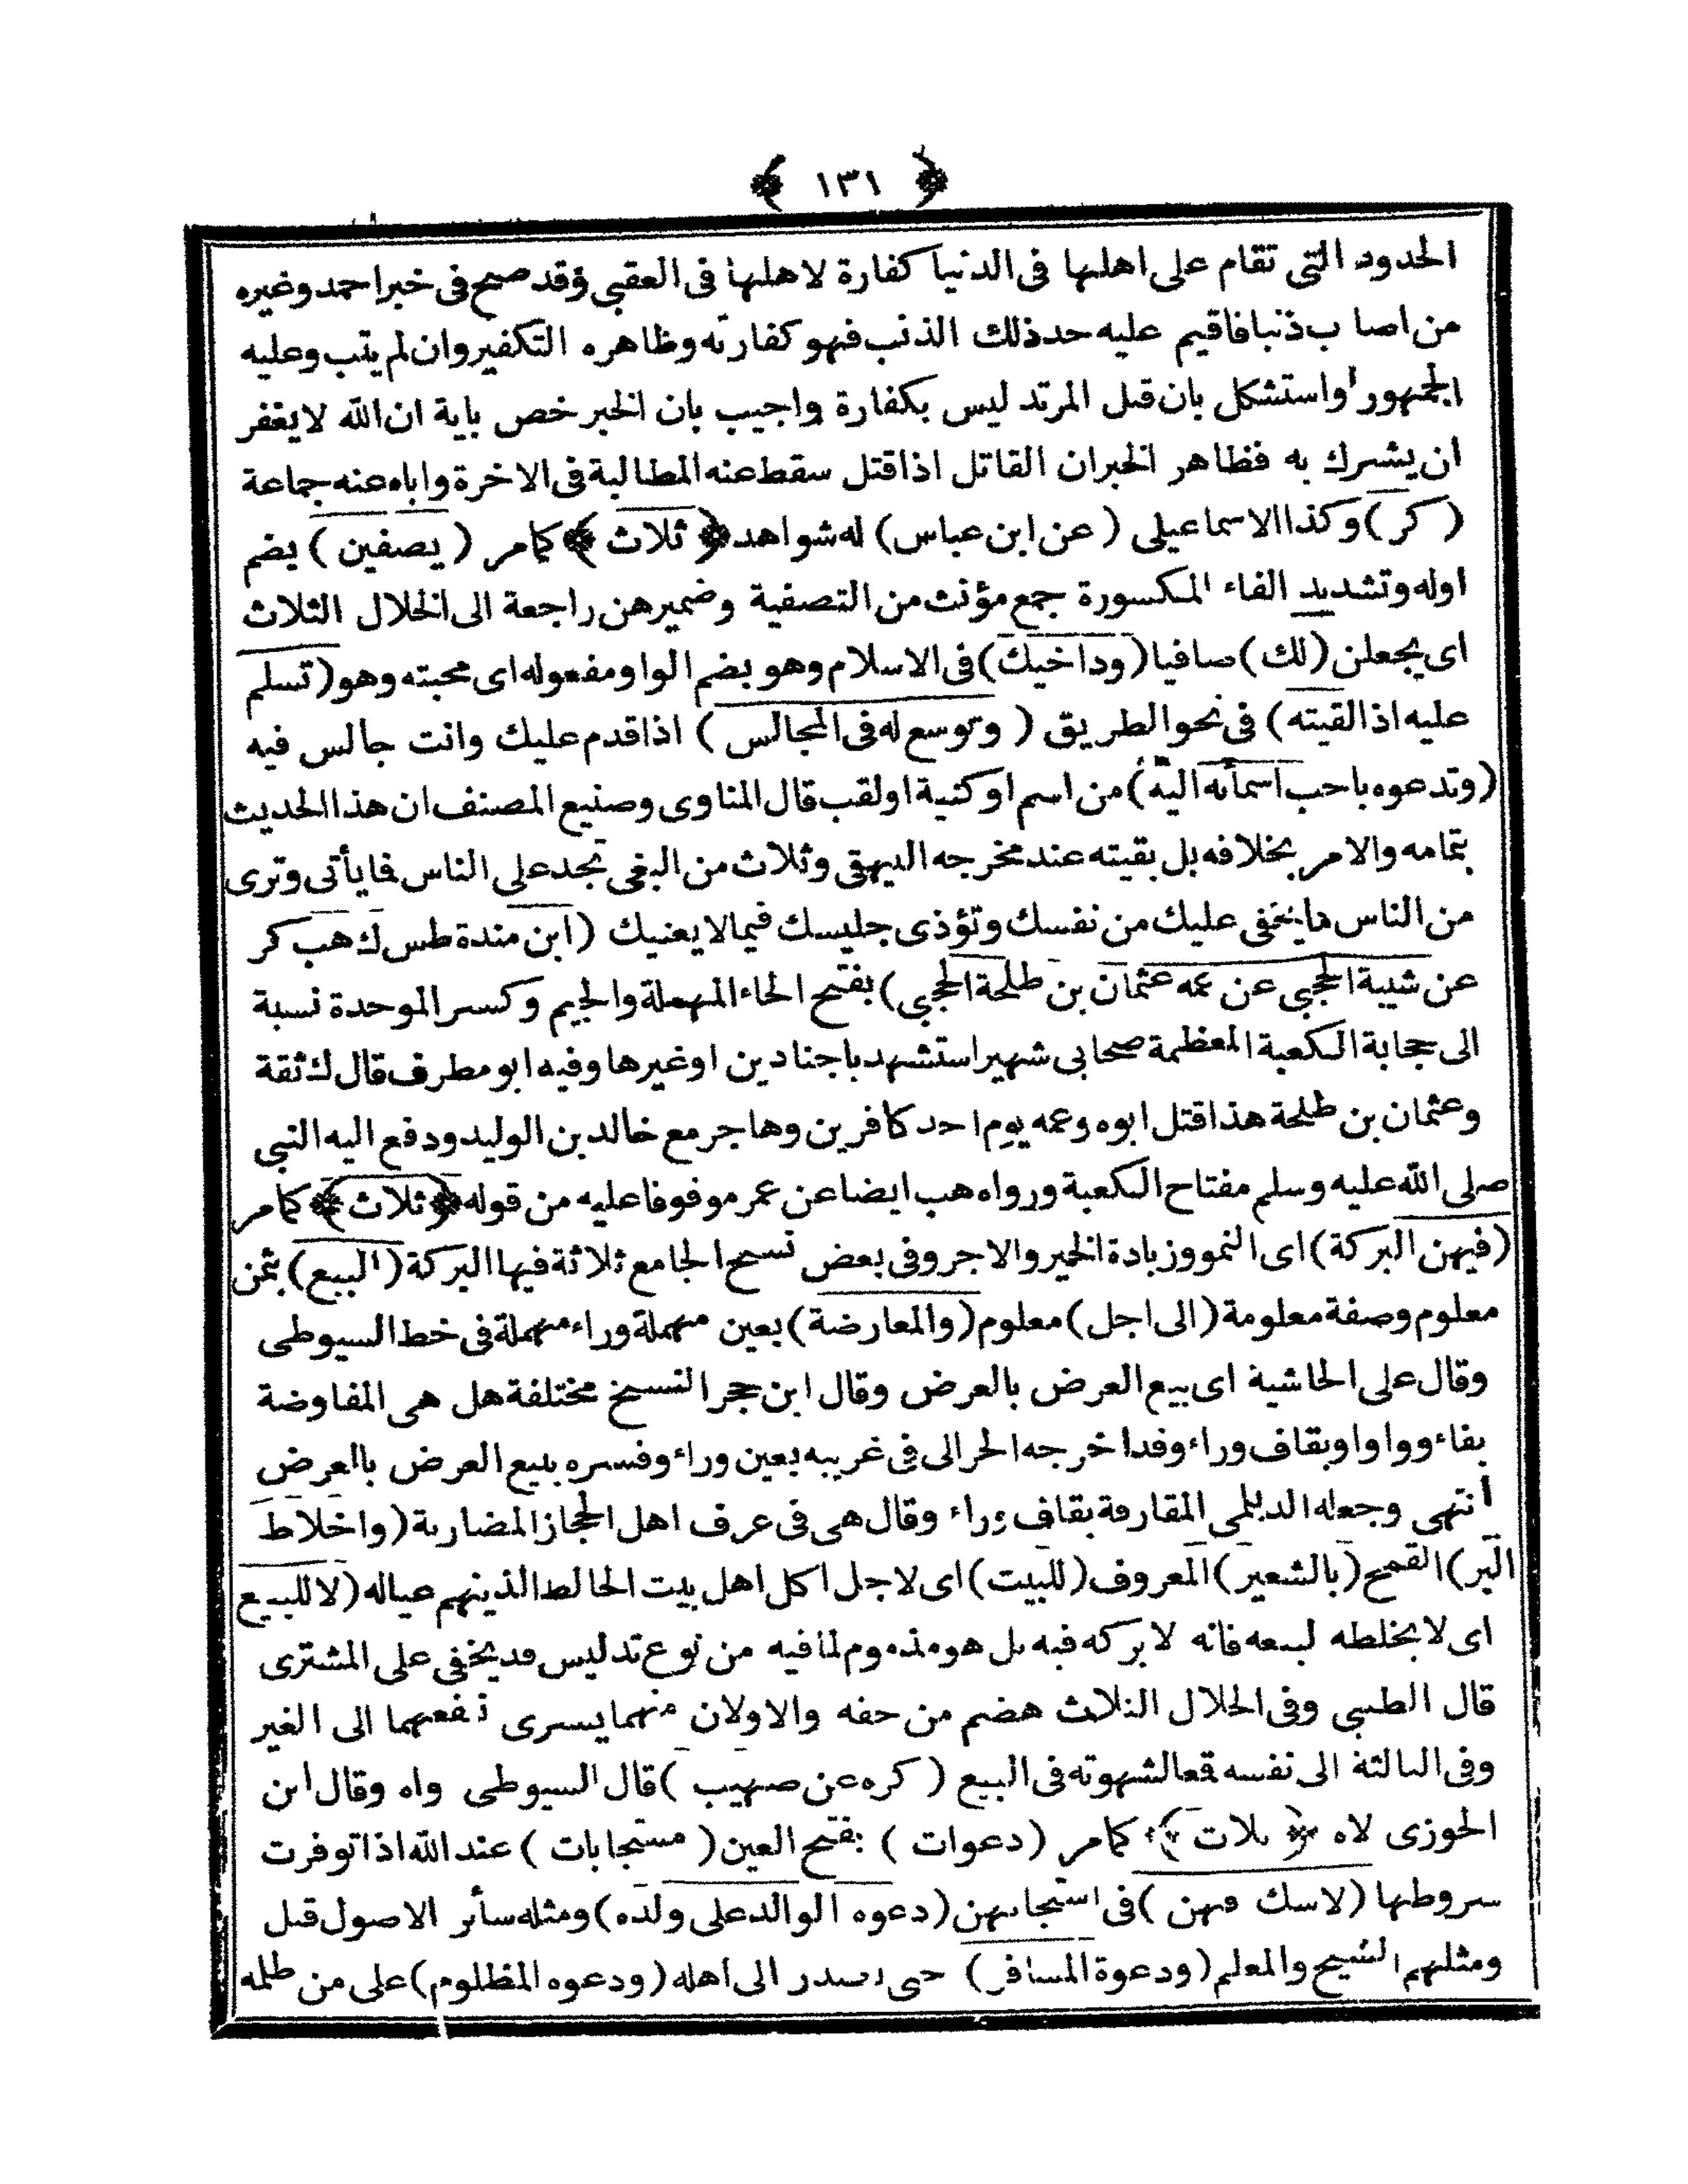 ﴿ ١٣١ ﴾
الحدود التى تقام على اهلها فى الدنيا كفارة لاهلها فى العقبى وقد صح فى خبر احمد وغيره
من اصاب ذنبا فاقيم عليه حد ذلك الذنب فهو كفارته وظاهره التكفير وان لم يتب وعليه
الجمهور واستشكل بان قتل المرتد ليس بكفارة واجيب بان الخبر خص باية ان الله لا يغفر
ان يشرك به فظاهر الخبر ان القاتل اذا قتل سقط عنه المطالبة فى الاخرة واباه عنه جماعة
(كر) وكذا الاسماعيلى (عن ابن عباس) له شواهد ﴿ ثلاث ﴾ كامر (يصفين) بضم
اوله وتشديد الفاء المكسورة جمع مؤنث من التصفية وضميرهن راجعة الى الخلال الثلاث
اى يجعلن (لك) صافيا (ود اخيك) فى الاسلام وهو بضم الواو مفعوله اى محبته وهو (تسلم
عليه اذا لقيته) فى نحو الطريق (وتوسع له فى المجالس) اذا قدم عليك وانت جالس فيه
(وتدعوه باحب اسمائه اليه) من اسم او كنية او لقب قال المناوى وصنيع المصنف ان هذا الحديث
بتمامه والامر بخلافه بل بقيته عند مخرجه البيهقى وثلاث من البغى تجد على الناس فيما يأتى وترى
من الناس ما يخفى عليك من نفسك وتؤذى جليسك فيما لا يعنيك (ابن مندة طس ك هب كر
عن شيبة الحجبى عن عمه عثمان بن طلحة الحجبى) بفتح الحاء المهملة والجيم وكسر الموحدة نسبة
الى حجابة الكعبة المعظمة صحابى شهير استشهد باجنادين او غيرها وفيه ابو مطرف قال ك ثقة
وعثمان بن طلحة هذا قتل ابوه وعمه يوم احد كافرين وهاجر مع خالد بن الوليد ودفع اليه النبى
صلى الله عليه وسلم مفتاح الكعبة ورواه هب ايضا عن عمر موقوفا عليه من قوله ﴿ ثلاث ﴾ كامر
(فيهن البركة) اى النمو وزيادة الخير والاجر وفى بعض نسخ الجامع ثلاثة فيها البركة (البيع) بثمن
معلوم وصفة معلومة (الى اجل) معلوم (والمعارضة) بعين مهملة وراء مهملة فى خط السيوطى
وقال على الحاشية اى بيع العرض بالعرض وقال ابن حجر النسخ مختلفة هل هى المفاوضة
بفاء وواو او بقاف وراء وقد اخرجه الحرالى فى غريبه بعين وراء وفسره ببيع العرض بالعرض
انتهى وجعله الديلمى المقارمة بقاف وراء وقال هى فى عرف اهل الحجاز المضاربة (واخلاط
البر) القمح (بالشعير) المعروف (للبيت) اى لاجل اكل اهل بيت الخالط الذين هم عياله (لا للبيع
اى لا يخلطه لبيعه فانه لا بركة فيه بل هو مذموم لما فيه من نوع تدليس قد يخفى على المشترى
قال الطيبى وفى الخلال الثلاث هضم من حقه والاولان منهما يسرى نفعهما الى الغير
وفى الثالثة الى نفسه قمعا لشهوته فى البيع (كره عن صهيب) قال السيوطى واه وقال ابن
الجوزى لاه ﴿ ثلاث ﴾ كامر (دعوات) بفتح العين (مستجابات) عند الله اذا توفرت
شروطها (لاشك فيهن) فى استجابتهن (دعوة الوالد على ولده) ومثله سائر الاصول قيل
ومثلهم الشيخ والمعلم (ودعوة المسافر) حتى يصدر الى اهله (ودعوة المظلوم) على من ظلمه